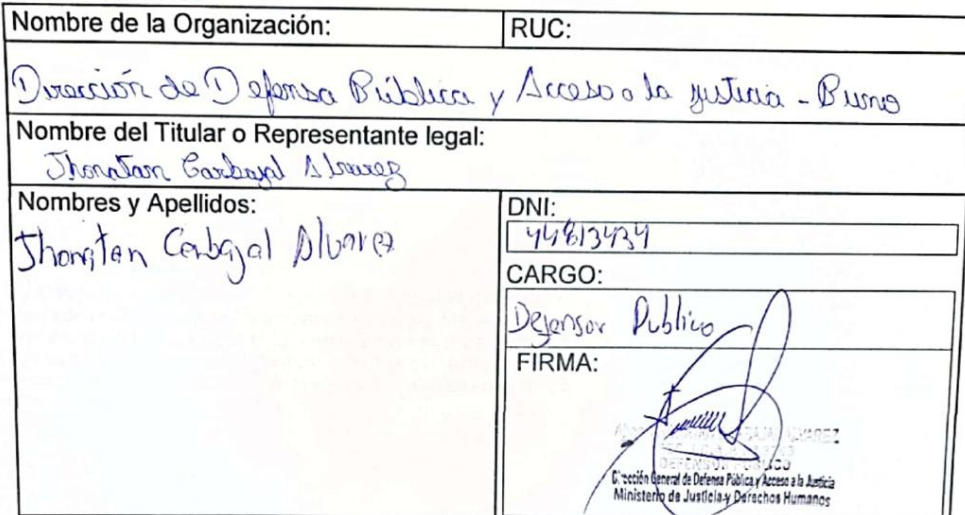 Nombre de la Organización: RUC:
Dirección de Defensa Pública y Acceso a la justicia - Puno
Nombre del Titular o Representante legal:
Jhonatan Carbajal Alvarez
Nombres y Apellidos: DNI:
Jhonatan Carbajal Alvarez 44813434
CARGO:
Defensor Publico
FIRMA:
DEFENSOR PUBLICO
Dirección General de Defensa Pública y Acceso a la Justicia
Ministerio de Justicia y Derechos Humanos